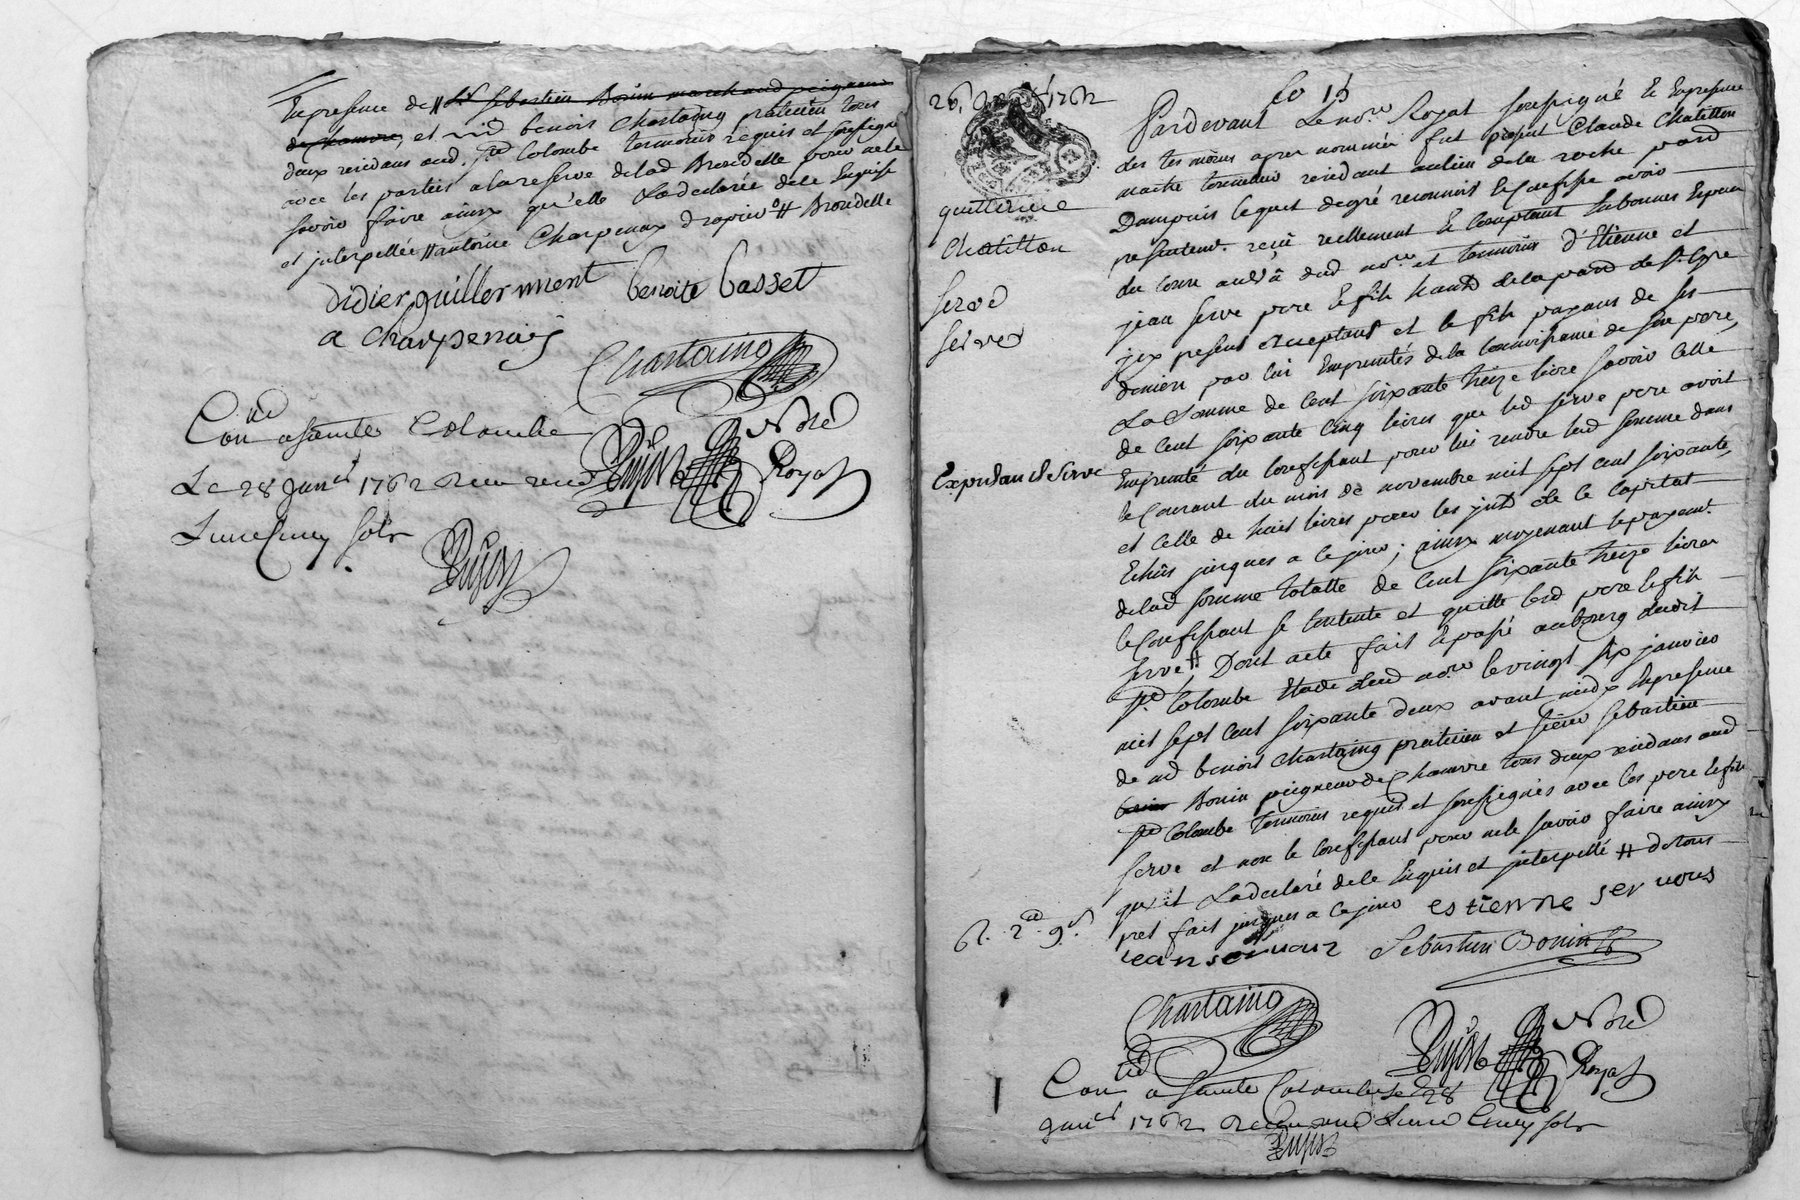 En presence de # Sr Sebastien Bonin marchand peigneur
de chanvre, et md benoit Chastaing praticien tous
deux residans aud. Ste Colombe temoins requis et soussignés
avec les parties a la reserve de lad Brondelle pour ne le
savoir faire ainsy qu'elle La declarée de ce Enquise
et interpellée # antoine Charpenay # Brondelle
didier guillermment benoite basset
a charpenaij
Chastaing
Con a Sainte Colombe
Le 28 Janer 1762 Receu
Dujast Nore Royal
Dujast
26 1762
quittance
Chatillon
Serve
Serve
Expedian Serve
Co 15
Pardevant Le nore Royal soussigné Et En presence
des temoins apres nommés fut present Claude Chatillon
residant au lieu de la roche
Dampuis lequel de gré reconnoit Et Confesse avoir
presentemt reçû reellement Et Comptant En bonnes Especes
du Cours aud nore et temoins d'Etienne et
jean serve pere Et fils de la parr de St Cyre
icy present acceptant et le fils payant de ses
denier par lui Empruntés de la Connoissance de son pere,
La Somme de Cent soixante treize livre savoir Celle
de Cent soixante Cinq livres que led serve pere avoit
Emprunté du Confessant pour lui rendre lad somme dans
le Courant du mois de novembre mil sept cent soixante,
et Celle de huit livres pour les jnts de ce Capital
Echûs jusques a ce jour; ainsy moyenant le payemt
de lad somme totalle de Cent soixante treize livres
le Confessant se Contente et quitte led pere Et fils
serve # Dont acte fait Et passé au bourg dudit
Ste Colombe Etude dud nore le vingt six janvier
mil sept Cent soixante deux avant midy En presence
de md benoit Chastaing praticien et sieur sebastien
Bonin peigneur de Chanvre tous deux residans aud
Ste Colombe temoins requis et soussignés avec les pere Et fils
serve et non le Confessant pour ne le savoir faire ainsy
qu'il La declaré de ce Enquis et interpellé # de tous
pret fait jusques a ce jour estienne servous
jean servair Sebastien Bonin
Chastaing
Dujast Nore Royal
Con a Sainte Colombe Le 28
Janer 1762 Receu
Dujast